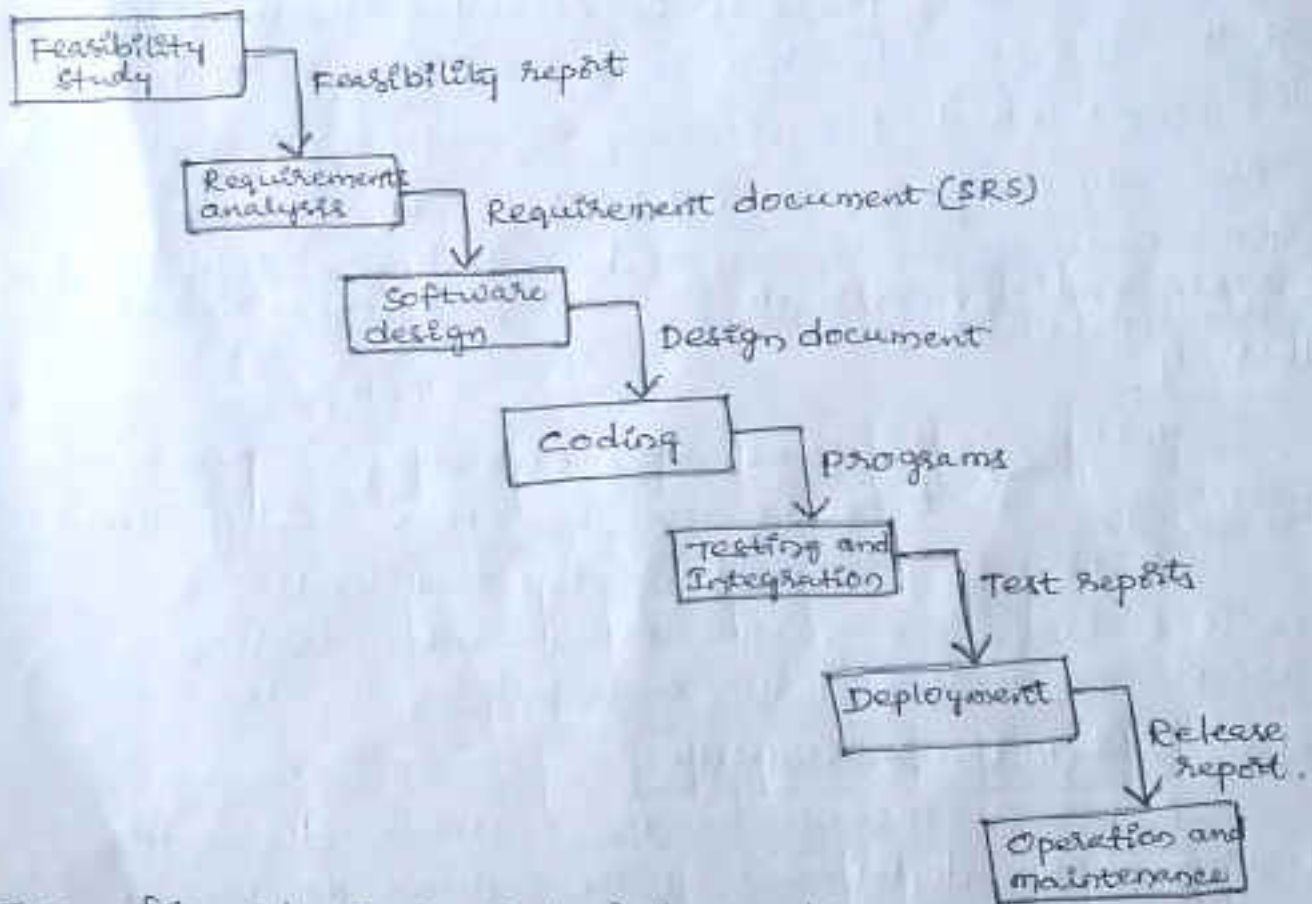 Feasibility
study
Feasibility report
Requirements
analysis
Requirement document (SRS)
Software
design
Design document
Coding
programs
Testing and
Integration
Test reports
Deployment
Release
report.
Operation and
maintenance